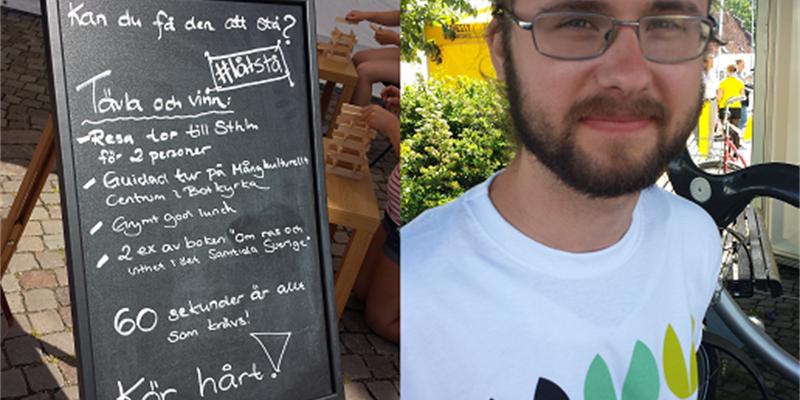 Kan du få den att stå?
#låtstå
Tävla och vinn:
- Resa tor till Sthlm
för 2 personer
- Guidad tur på Mångkulturellt
Centrum i Botkyrka
- Grymt god lunch
- 2 ex av boken "Om ras och
vithet i det Samtida Sverige"
60 sekunder är allt
som krävs!
Kör hårt!